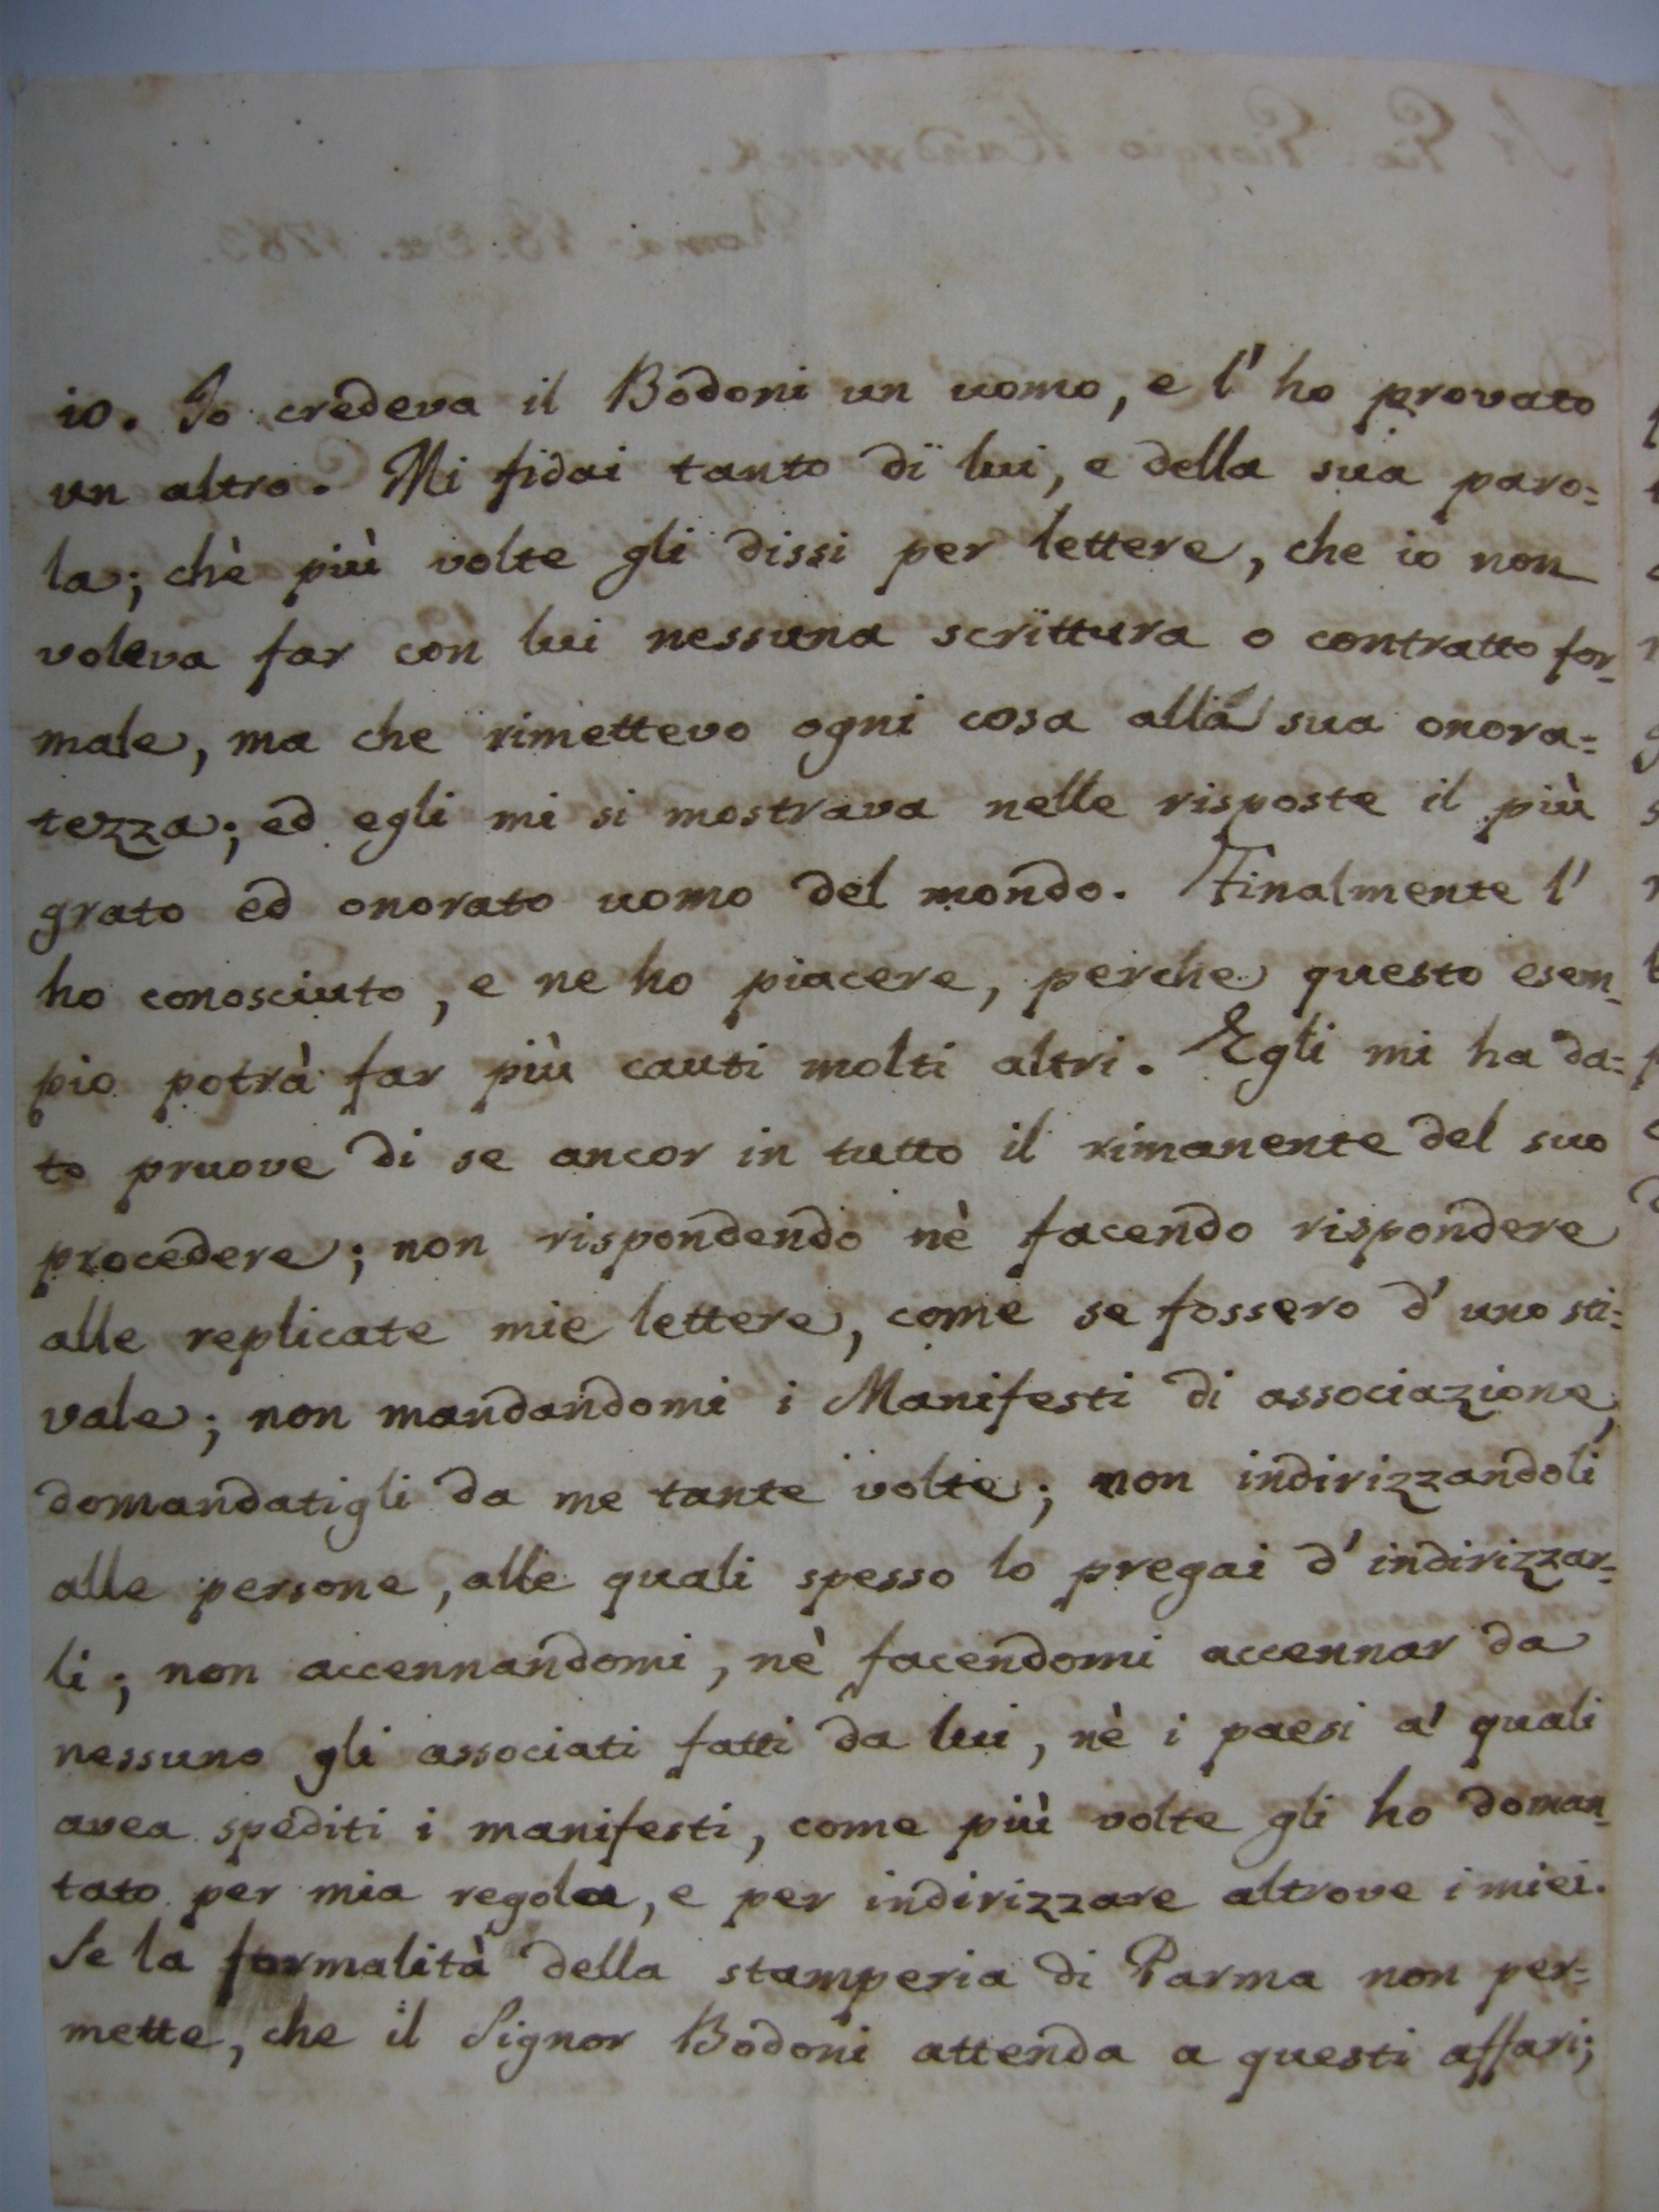 io. Io credeva il Bodoni un uomo, e l' ho provato
un altro. Mi fidai tanto di lui, e della sua paro=
la; chè più volte gli dissi per lettere, che io non
voleva far con lui nessuna scrittura o contratto for_
male, ma che rimettevo ogni cosa alla sua onora=
tezza; ed egli mi si mostrava nelle risposte il più
grato ed onorato uomo del mondo. Finalmente l'
ho conosciuto, e ne ho piacere, perche questo esem_
pio potrà far più cauti molti altri. Egli mi ha da=
to pruove di se ancor in tutto il rimanente del suo
procedere; non rispondendo nè facendo rispondere
alle replicate mie lettere, come se fossero d' uno sti=
vale; non mandandomi i Manifesti di associazione,
domandatigli da me tante volte; non indirizzandoli
alle persone, alle quali spesso lo pregai d' indirizzar=
li; non accennandomi, nè facendomi accennar da
nessuno gli associati fatti da lui, nè i paesi a' quali
avea spediti i manifesti, come più volte gli ho doman_
tato per mia regola, e per indirizzare altrove i miei.
Se la formalità della stamperia di Parma non per=
mette, che il Signor Bodoni attenda a questi affari;